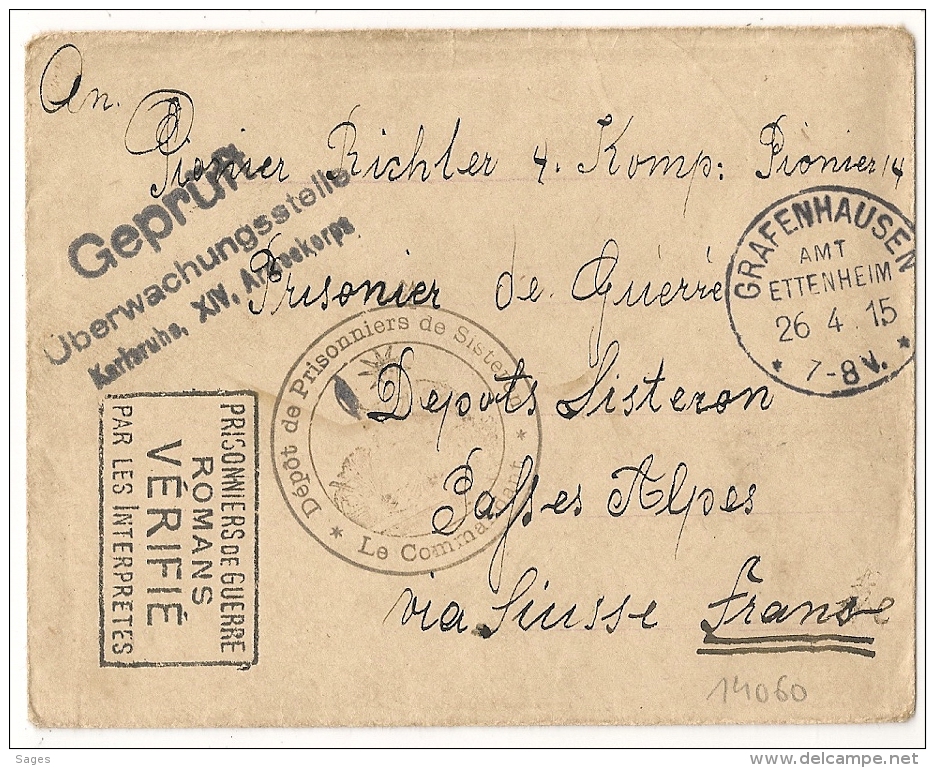 An.
Pionier Richler 4. Komp: Pionier 14
Prisonier de Guérre
Depots Sisteron
Basses Alpes
via Siusse France
Geprüft
Überwachungsstelle
Karlsruhe, XIV. Armeekorps
GRAFENHAUSEN
AMT
ETTENHEIM
26 4 15
* 7-8 V. *
Dépôt de Prisonniers de Sisteron
* Le Commandant *
PRISONNIERS DE GUERRE
ROMANS
VÉRIFIÉ
PAR LES INTERPRÈTES
14060
Sages
www.delcampe.net